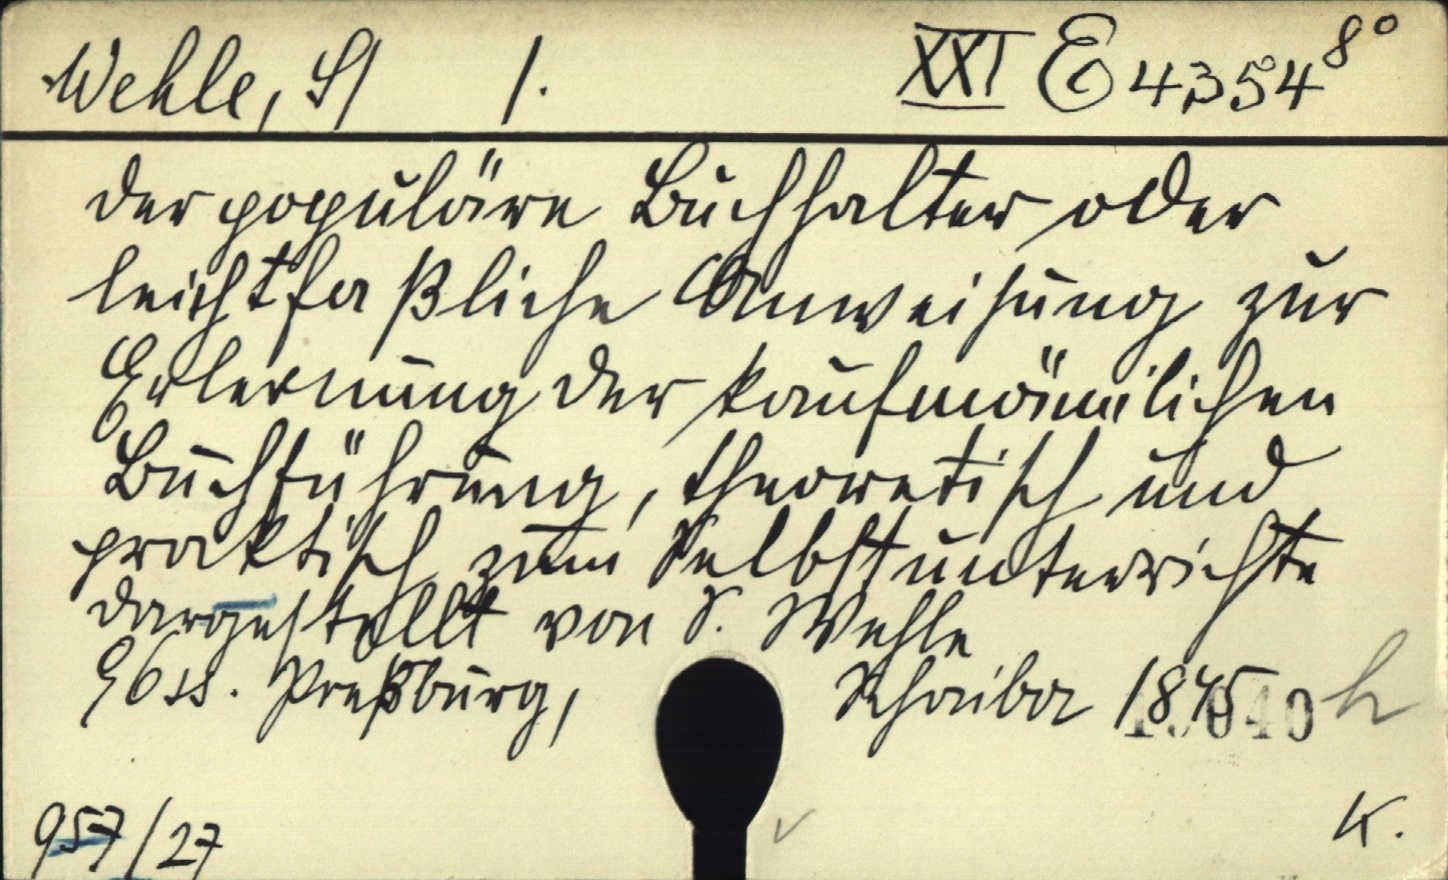 Wehle, S/ 1. XXI E 4354 8°
Der populäre Buchhalter oder
leichtfaßliche Anweisung zur
Erlernung der kaufmännischen
Buchführung, theoretisch und
praktisch zum Selbstunterrichte
dargestellt von S. Wehle
96 SS. Preßburg, Schaiba 1845 h
957/27 K.